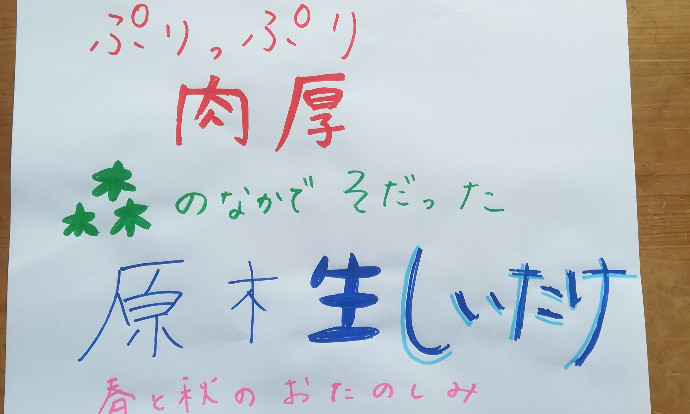 ぷりっぷり
肉厚
森のなかでそだった
原木生しいたけ
春と秋のおたのしみ